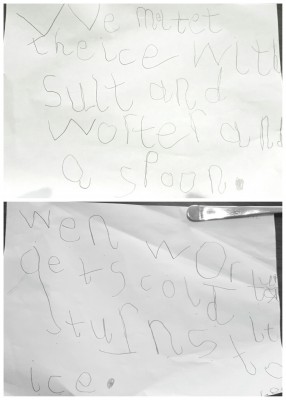 We miltet
the ice with
sult and
worter and
a spoon.
wen worter
gets cold
it turns
to
ice.